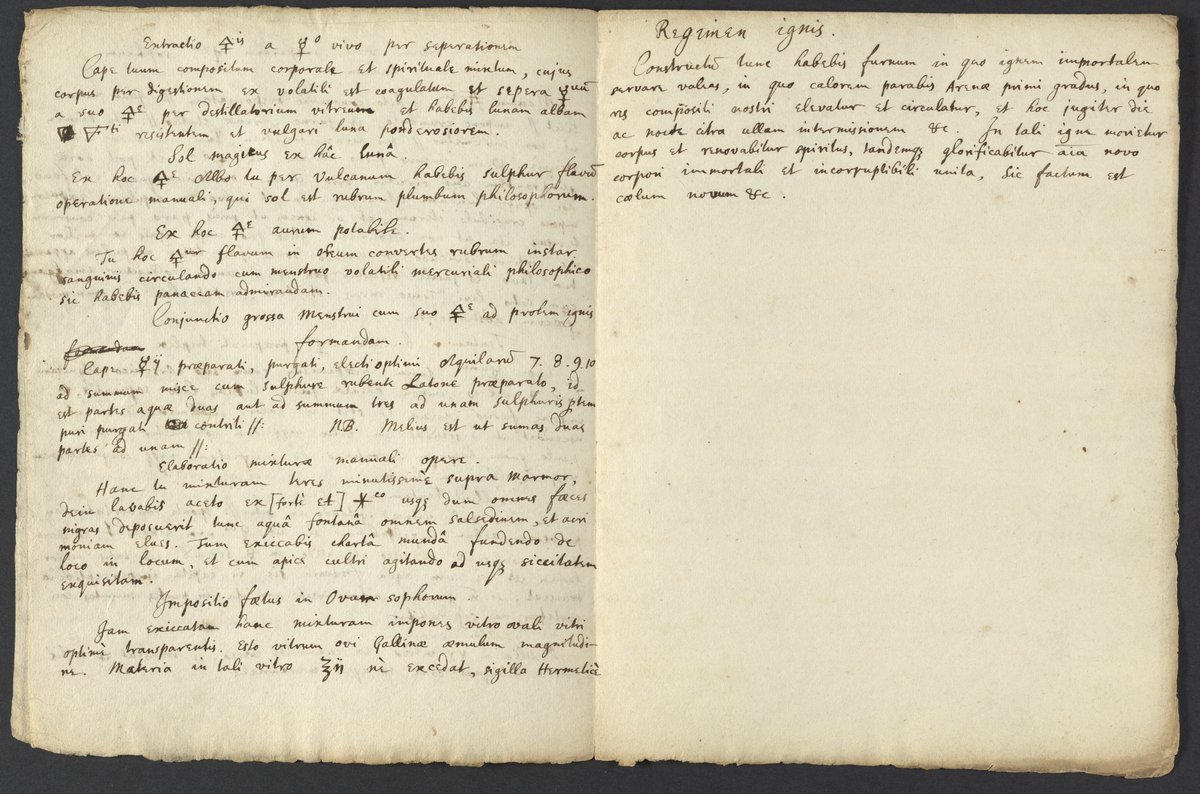 Extractio 🜍is a ☿o vivo per seperationem
Cape tuum compositum corporale et spirituale mixtum, cujus
corpus per digestionem ex volatili est coagulatum et sepera ☿um̄
a suo 🜍e per destillatorium vitreum et habebis lunam albam
🜄 🜃ti resistentem et vulgari luna ponderosiorem.
Sol magicus ex hâc lunâ.
Ex hoc 🜍e Albo tu per Vulcanum habebis sulphur flavū
operatione manuali, qui sol est rubrum plumbum philosophorum.
Ex hoc 🜍e aurum potabile.
Tu hoc 🜍ur flavum in oleum convertes rubrum instar
sanguinis circulando cum menstruo volatili mercuriali philosophico
sic habebis panaceam admirandam.
Conjunctio grossa Menstrui cum suo 🜍e ad prolem ignis
formandam.
Cape ☿ij præparati, purgati, electi optimi Aquilarū 7. 8. 9. 10
ad summum misce cum sulphure rubente Latone præparato, id
est partes aquæ duas aut ad summum tres ad unam sulphuris ptem
puri purgati contriti //: NB. Melius est ut sumas duas
partes ad unam //:
Elaboratio mixturæ manuali opere.
Hanc tu mixturam teres minutissimè supra Marmor,
dein lavabis aceto ex [fortè Et] 🞶co usqȝ dum omnes fæces
nigras deposuerit tunc aquâ fontanâ omnem salsedinem, et acri
moniam elues. Tum exiccabis chartâ mundâ fundendo de
loco in locum, et cum apice cultri agitando ad usqȝ siccitatem
exquisitam.
Impositio fœtus in Ovum sophorum.
Jam exiccatam hanc mixturam impones vitro ovali vitri
optimè transparentis. Esto vitrum ovi Gallinæ æmulum magnitudi-
ne. Materia in tali vitro ℥ij nè excedat, sigilla Hermeticè
Regimen ignis.
Constructū tunc habebis furnum in quo ignem immortalem
servare valeas, in quo calorem parabis Arenæ primi gradus, in quo
res compōsiti nostri elevatur et circulatur, et hoc jugiter die
ac nocte citra ullam intermissionem &c. In tali igne morietur
corpus et renovabitur spiritus, tandemqȝ glorificabitur aīa novo
corpori immortali et incorruptibili unita, Sic factum est
cœlum novum &c.